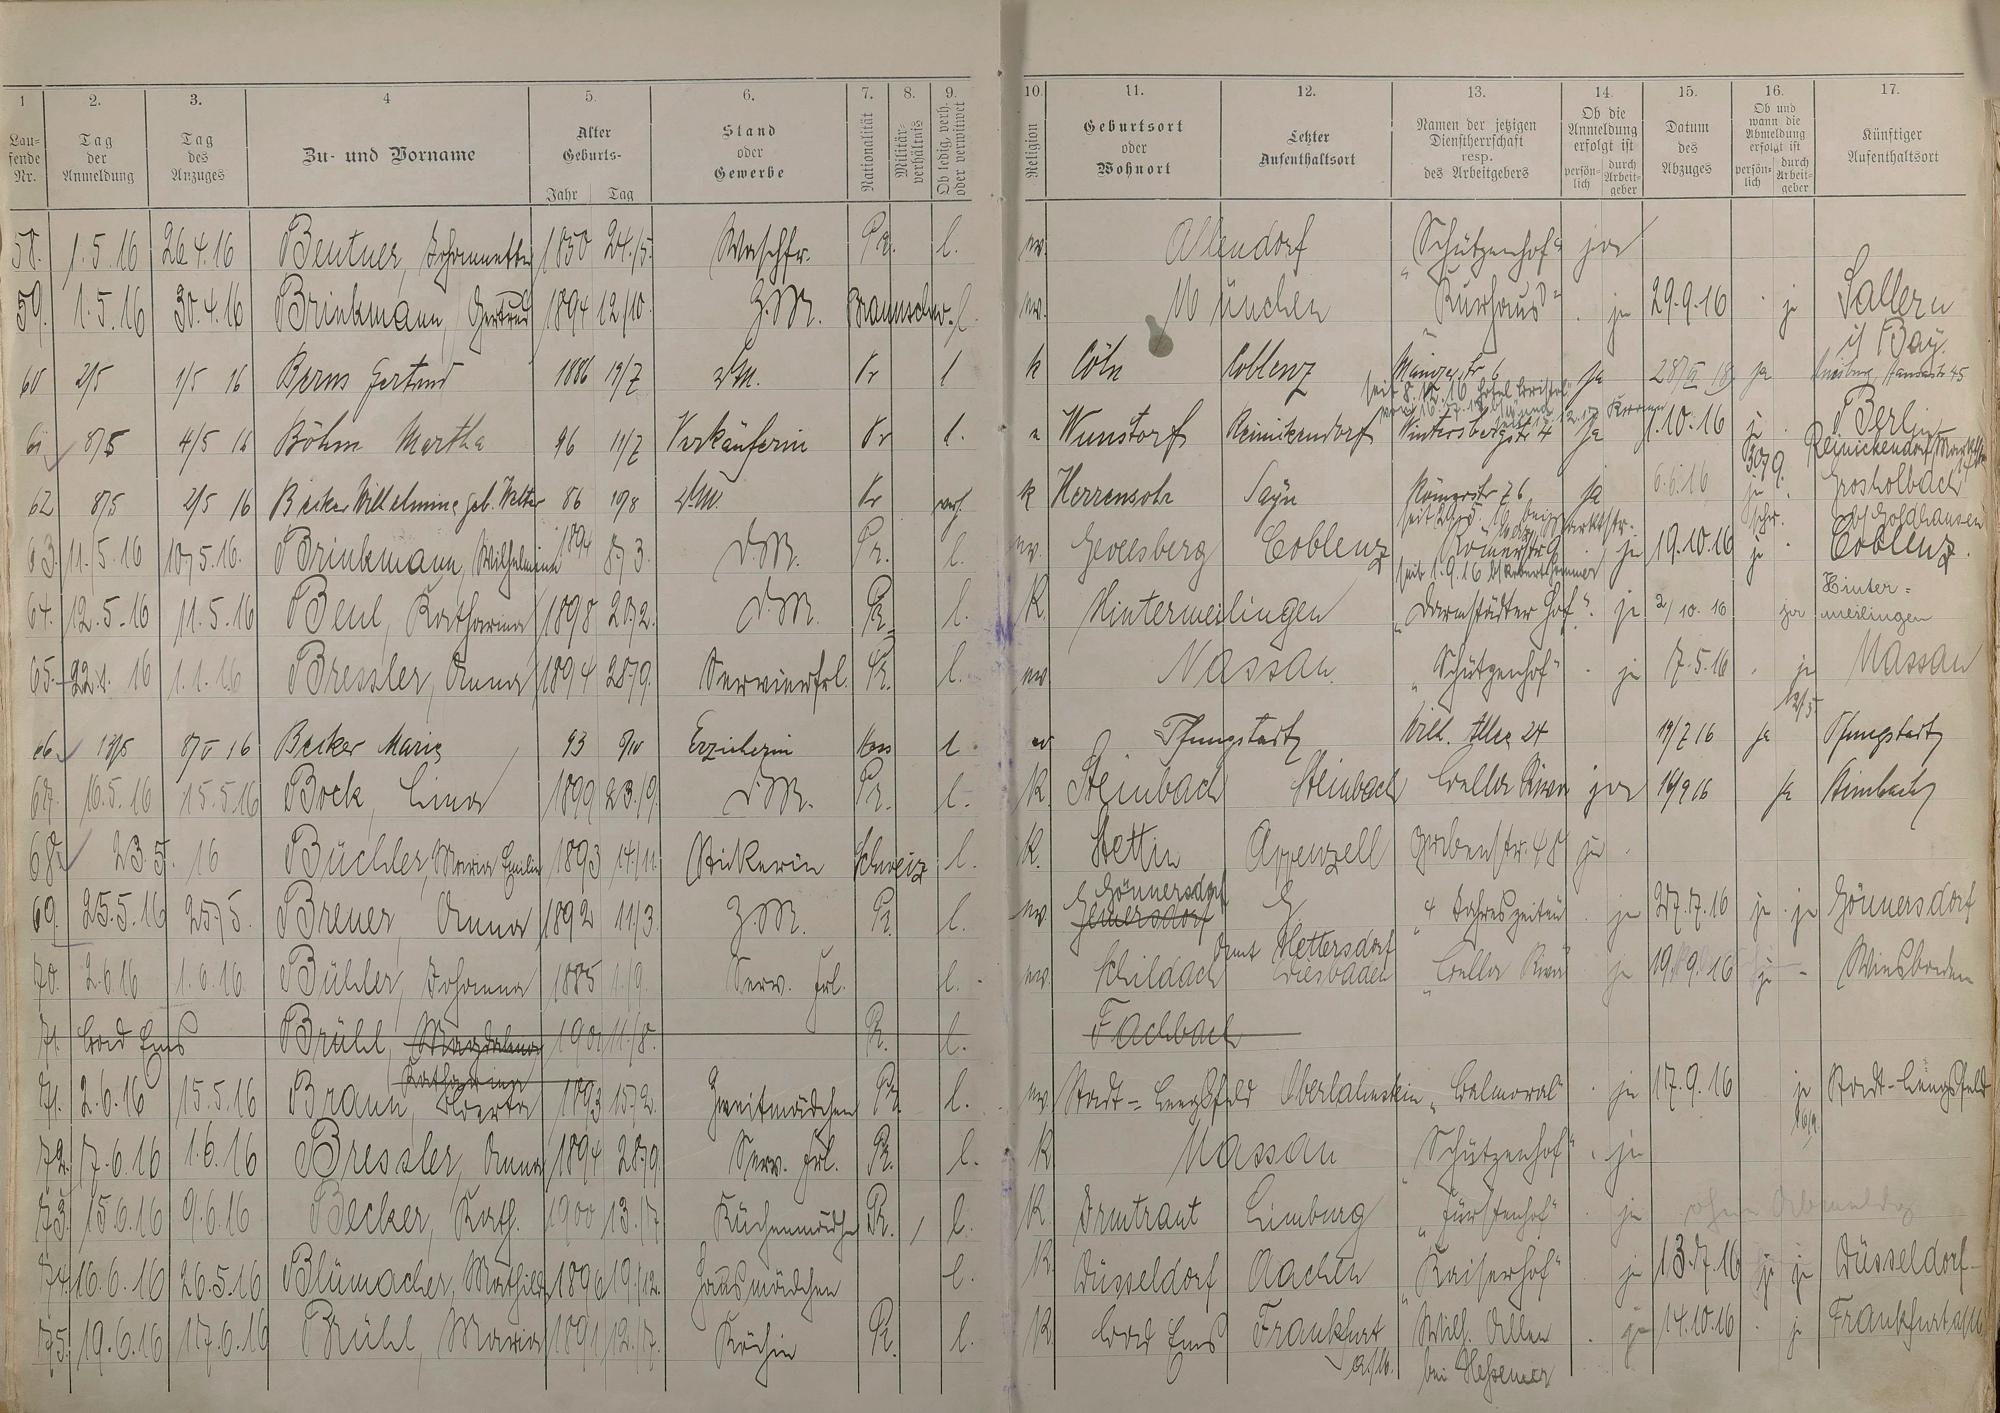 1 2. 3. 4 5. 6. 7. 8. 9. 10. 11. 12. 13. 14. 15. 16. 17.
Lau-
fende
Nr.
Tag
der
Anmeldung
Tag
des
Anzuges
Zu- und Vorname
Alter
Geburts-
Jahr Tag
Stand
oder
Gewerbe
Nationalität
Militär-
verhältnis
Ob ledig, verh.
oder verwitwet
Religion
Geburtsort
oder
Wohnort
Letzter
Aufenthaltsort
Namen der jetzigen
Dienstherrschaft
resp.
des Arbeitgebers
Ob die
Anmeldung
erfolgt ist
persön-
lich
durch
Arbeit-
geber
Datum
des
Abzuges
Ob und
wann die
Abmeldung
erfolgt ist
persön-
lich
durch
Arbeit-
geber
Künftiger
Aufenthaltsort
58. 1.5.16 26.4.16 Beutner, Johannette 1850 24./5. Waschfr. Pr. l. ev. Allendorf „Schützenhof“ ja
59. 1.5.16 30.4.16 Brinkmann, Gertrud 1894 12/10. Z.M. Braunschw. l. ev. München „Kurhaus“ . ja 29.9.16 . ja Sallern
i/ Bay.
60 2/5 1/5 16 Berns Gertrud 1886 19/7 Pr l k Cöln Coblenz 6 ja ja 45
seit 8.12.16 Hotel Bristol
61 8/5 4/5 16 Böhm Martha 96 11/7 Verkäuferin Pr l. Wunstorf Reinikendorf Wintersbergstr 4 ja 1.10.16 Berlin
Reinickendorf
62 8/5 2/5 16 Becker Wilhelmine geb. Welter 86 19/8 Pr verh. k Herrensohr Sayn Römerstr 76 ja 6.6.16 Grosholbach
bei Goldhausen
63. 11.5.16 10/5.16. Brinkmann, Wilhelmine 1894 8/3. D.M. Pr. l. ev. Gevelsberg Coblenz Römerstr. 9 . ja 19.10.16 ja . Coblenz.
seit 1.9.16
64. 12.5.16 11.5.16 Beul, Katharina 1898 20/2. D.M. Pr. l. K. Hintermeilingen „Darmstädter Hof“. ja 2/10.16 ja Hinter-
meilingen
65. 22.1.16 1.1.16 Bressler, Anna 1894 28/9. Servierfrl. Pr. l. ev Nassau. „Schützenhof“ . ja 7.5.16 . ja Nassau
12/5
66 13/5 8/V 16 Becker Marie 93 Erzieherin Hess l ev Pfungstadt Wilh. Allee 24 19/7 16 ja Pfungstadt
67. 16.5.16 15.5.16 Bock, Lina 1899 23./9. D.M. Pr. l. K. Steinbach Steinbach Bella Riva ja 16/9 16 ja Steinbach
68. 23.5.16 Büchler, Maria Emilie 1893 14./11. Stickerin Schweiz l. K. Stettin Appenzell Grabenstr. 48 ja .
69. 25.5.16 25/5. Breuer, Anna 1892 11/3. Z.M. Pr. l. ev. Gönnersdorf G. „4 Jahreszeiten“ . ja 27.7.16 ja . ja Gönnersdorf
Amt Hettersdorf
70. 2.6.16 1.6.16. Bühler, Johanna 1885 1./9. Serv. Frl. l. ev. Schildach Wiesbaden „Bella Riva“ ja 19.9.16 ja - Wiesbaden
71. Bad Ems Brühl, Magdalena 1901 11./8. Pr. l. Fachbach
Katharina
71. 2.6.16 15.5.16 Braun, Berta 1893 15/2. Zweitmädchen Pr. l. ev Stadt-Lengsfeld Oberlahnstein „Balmoral“ . ja 17.9.16 ja Stadt-Lengsfeld
72. 7.6.16 1.6.16 Bressler, Anna 1894 28/9. Serv. Frl. Pr. l. K Nassau „Schützenhof“ . ja
73. 15.6.16 9.6.16 Becker, Kath. 1900 13./7. Küchenmädch. Pr. l. K. Irmtraut Limburg „Fürstenhof“ . ja ohne Abmeldg
74. 16.6.16 26.5.16 Blümacher, Mathilde 1896 19./12. Hausmädchen l. K. Düsseldorf Aachen „Kaiserhof“ . ja 13.7.16 ja ja Düsseldorf
75. 19.6.16 17.6.16 Brühl, Maria 1891 12./7. Köchin Pr. l. K. Bad Ems Frankfurt a/M. Wilh. Allee . ja 14.10.16 . ja Frankfurt a/M